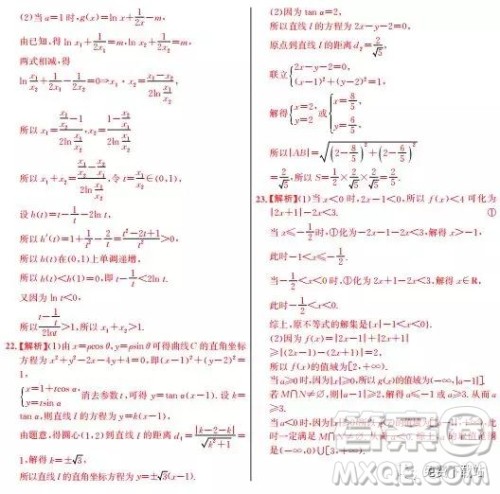 (2)当a=1时,g(x)=ln x+1/(2x)-m,
由已知,得ln x₁+1/(2x₁)=m,ln x₂+1/(2x₂)=m,
两式相减,得
ln(x₁/x₂)+1/(2x₁)-1/(2x₂)=0⇒x₁·x₂=(x₁-x₂)/(2ln(x₁/x₂)),
所以x₁=(x₁/x₂-1)/(2ln(x₁/x₂)),x₂=(1-x₂/x₁)/(2ln(x₁/x₂)),
所以x₁+x₂=(x₁/x₂-x₂/x₁)/(2ln(x₁/x₂)),令t=x₁/x₂∈(0,1),
设h(t)=t-1/t-2ln t,
所以h′(t)=1+1/t²-2/t=(t²-2t+1)/t²>0,
所以h(t)在(0,1)上单调递增,
所以h(t)<h(1)=0,即t-1/t<2ln t.
又因为ln t<0,
所以(t-1/t)/(2ln t)>1,所以x₁+x₂>1.
22.【解析】(1)由x=ρcosθ,y=ρsinθ可得曲线C的直角坐标
方程为x²+y²-2x-4y+4=0,即(x-1)²+(y-2)²=
1,
{x=1+tcos α, y=tsin α 消去参数t,可得y=tan α(x-1).设k=
tan α,则直线l的方程为y=k(x-1).
由题意,得圆心(1,2)到直线l的距离d₁=|k-2-k|/√(k²+1)=
1,解得k=±√3,
所以直线l的直角坐标方程为y=±√3(x-1).
(2)因为tan α=2,
所以直线l的方程为2x-y-2=0,
原点到直线l的距离d₂=2/√5,
联立{2x-y-2=0, (x-1)²+(y-2)²=1,
解得{x=2, y=2或{x=8/5, y=6/5,
所以|AB|=√((2-8/5)²+(2-6/5)²)
=2/√5,所以S=1/2×2/√5×2/√5=2/5.
23.【解析】(1)当x<0时,2x-1<0,所以f(x)<4可化为
|2x+1|-2x<3. ①
当x≤-1/2时,①化为-2x-1-2x<3,解得x>-1,
此时-1<x≤-1/2.
当-1/2<x<0时,①化为2x+1-2x<3,解得x∈R,
此时-1/2<x<0.
综上,原不等式的解集是{x|-1<x<0}.
(2)因为f(x)=|2x-1|+|2x+1|
≥|(2x-1)-(2x+1)|=2,
所以f(x)的值域为[2,+∞).
当a≥0时,因为
若M∩N≠∅,则|a-1|≥2,解得a≤-1或a≥3.从而a
≥3.